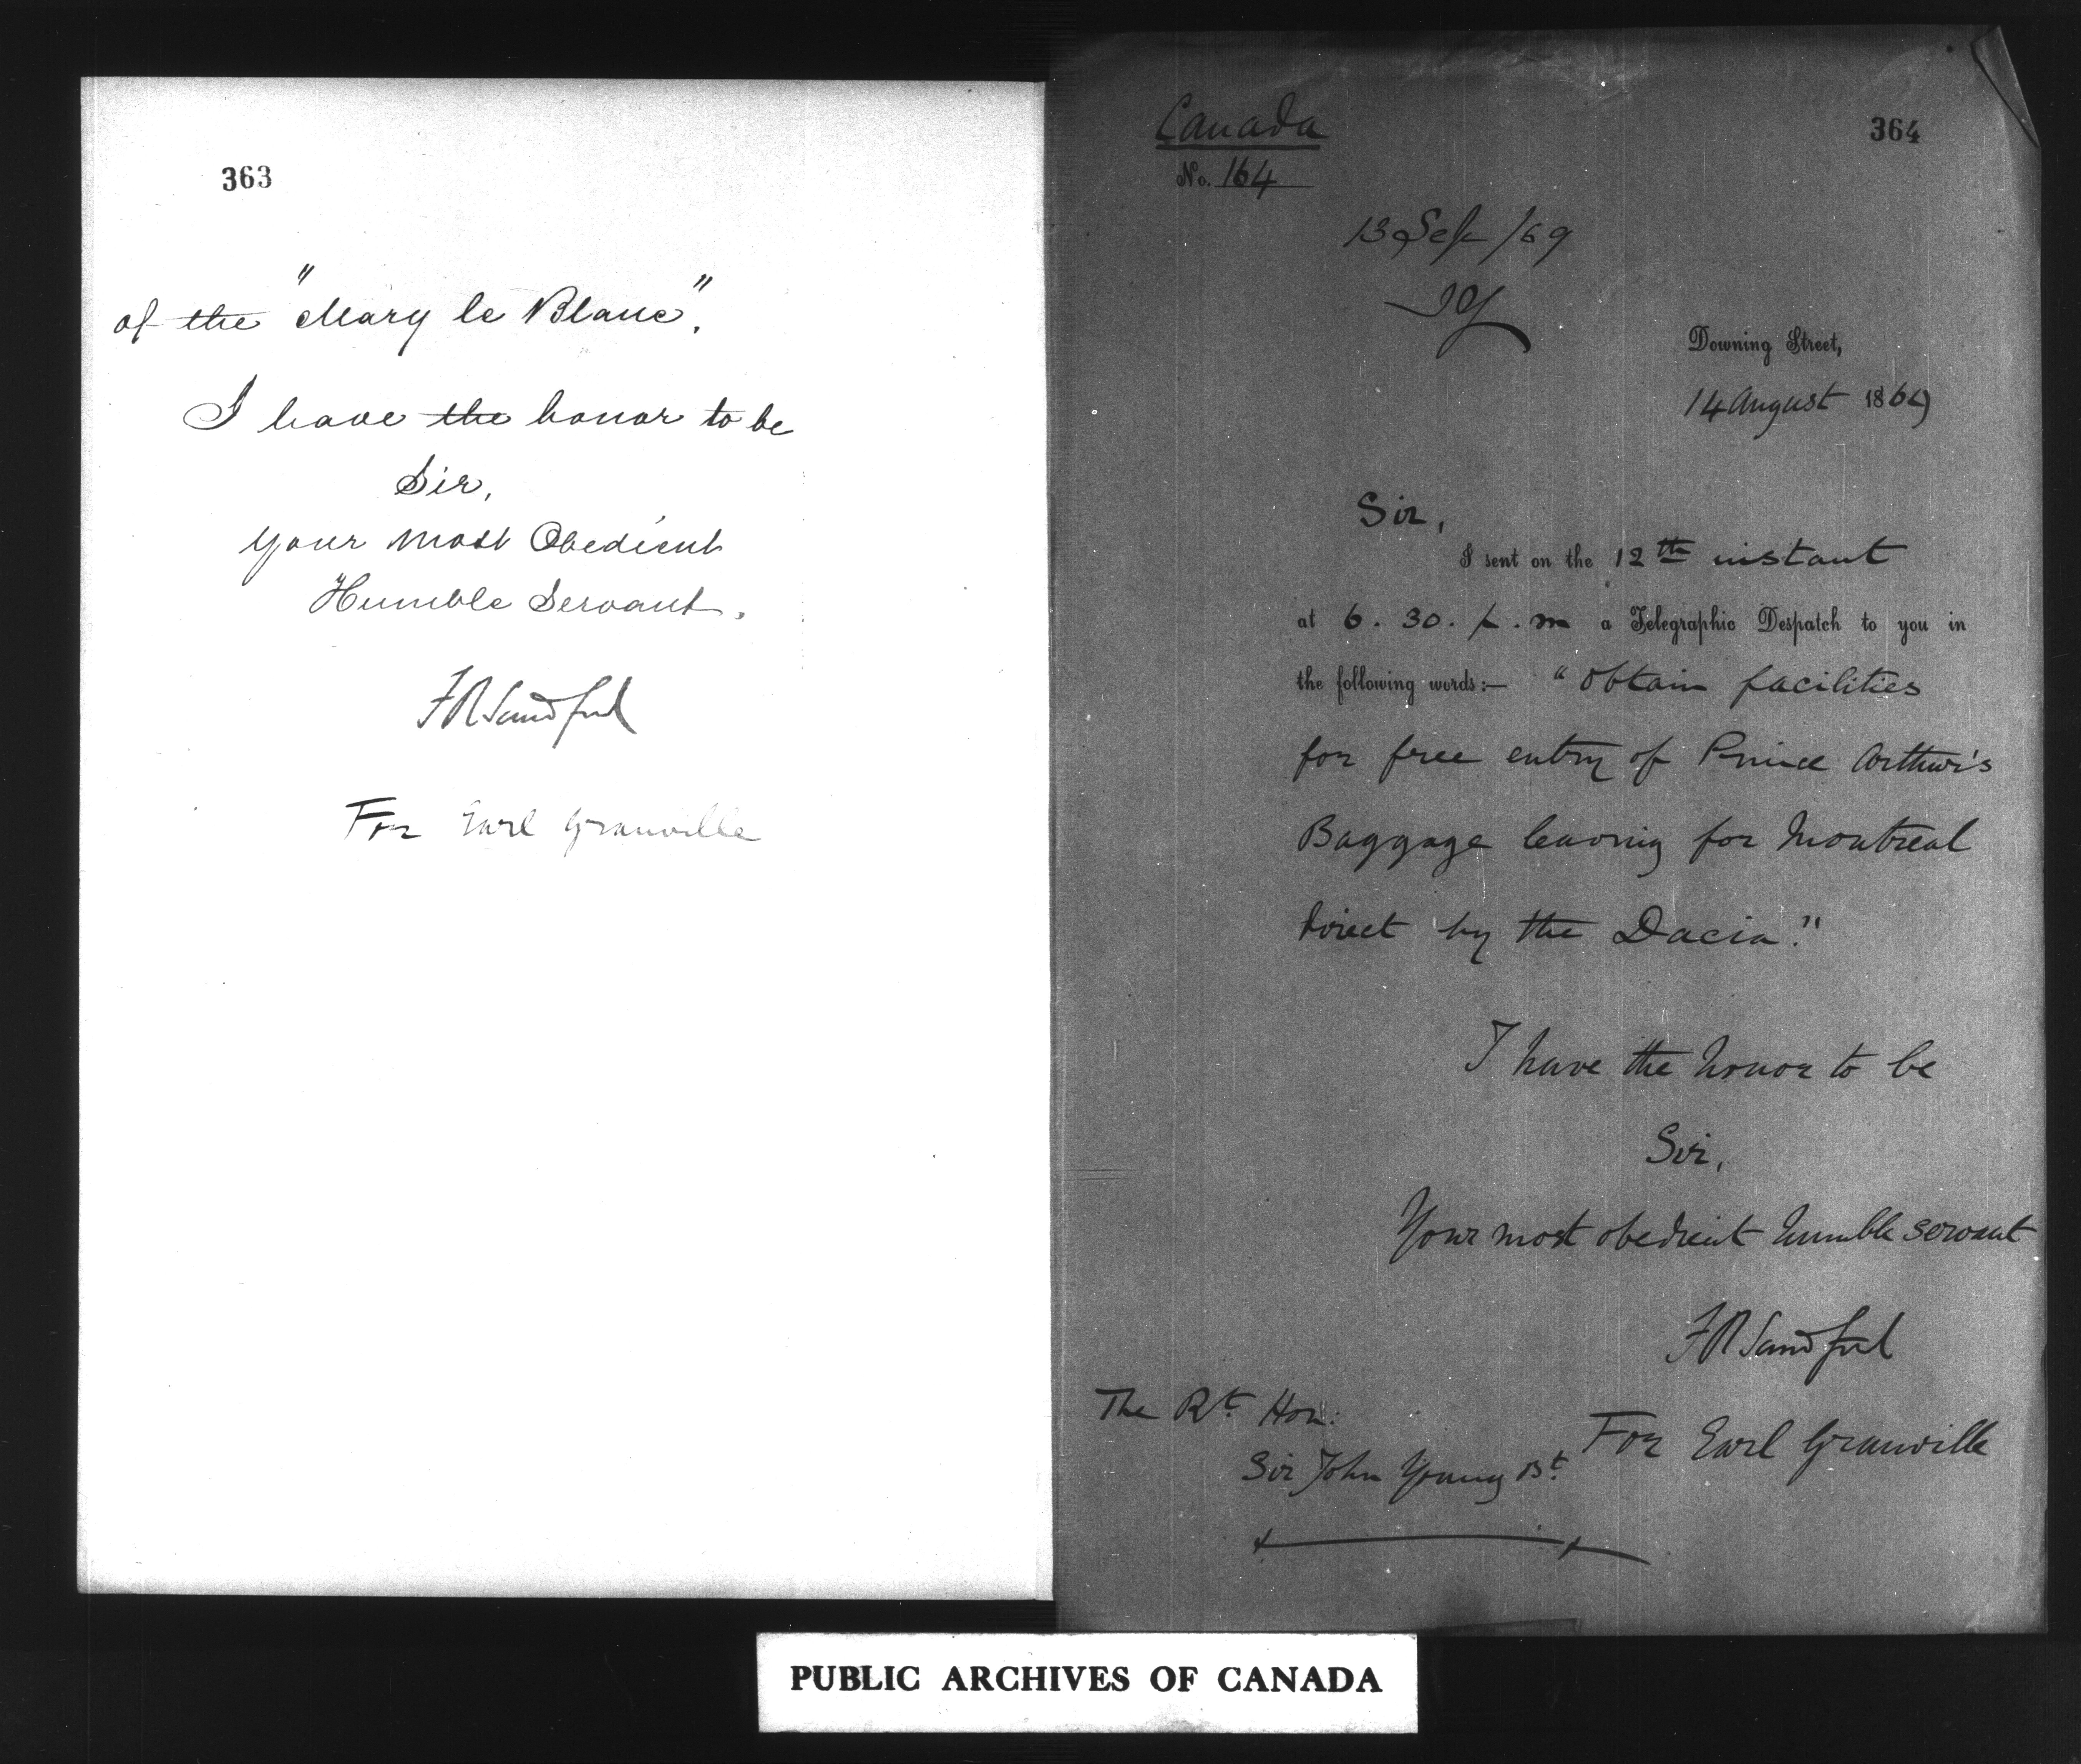 363
of the "Mary le Blanc".
I have the honor to be
Sir,
Your Most Obedient
Humble Servant.
FRSandford
For Earl Granville
Canada
No. 164
364
13 Sep /69
JY
Downing Street,
14 August 1869
Sir,
I sent on the 12th instant
at 6. 30. p. m a Telegraphic Despatch to you in
the following words:— "Obtain facilities
for free entry of Prince Arthur's
Baggage leaving for Montreal
direct by the Dacia."
I have the honor to be
Sir,
Your most obedient humble servant
FRSandford
The Rt. Hon:
Sir John Young Bt.
For Earl Granville
PUBLIC ARCHIVES OF CANADA